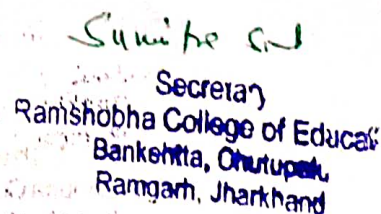 Secretary
Ramshobha College of Educati
Bankehtta, Chutupalu,
Ramgarh, Jharkhand